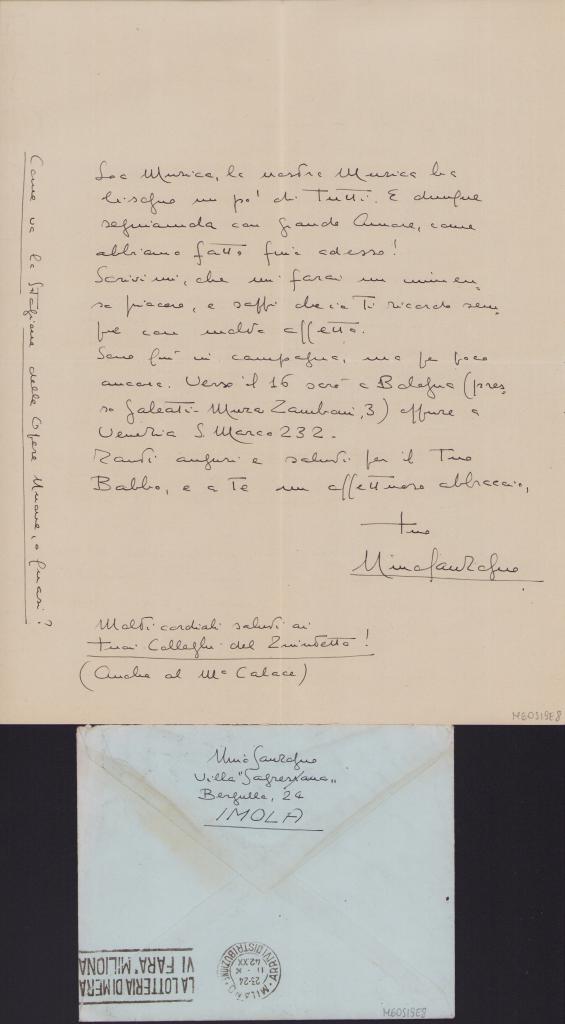 La Musica, la nostra Musica ha
bisogno un po' di Tutti. E dunque
seguiamola con grande Amore, come
abbiamo fatto fino adesso!
Scrivimi, che mi farai un immen-
so piacere, e sappi che io Ti ricordo sem-
pre con molto affetto.
Sono qui in campagna, ma per poco
ancora. Verso il 16 sarò a Bologna (pres-
so Galeati - Mura Zamboni, 3) oppure a
Venezia S. Marco 232.
Tanti auguri e saluti per il Tuo
Babbo, e a Te un affettuoso abbraccio,
tuo
Nino Sanzogno
Molti cordiali saluti ai
tuoi Colleghi del Quintetto!
(Anche al Mo Calace)
Come va la Stagione delle Opere Nuove, o quasi?
ME0519E8
Nino Sanzogno
Villa "
Bergullo, 24
IMOLA
LA LOTTERIA DI MERA
VI FARA' MILIONA
MILANO
ARRIVI DISTRIBUZIONE
23-24
11 - X
42 XX
ME0519E8